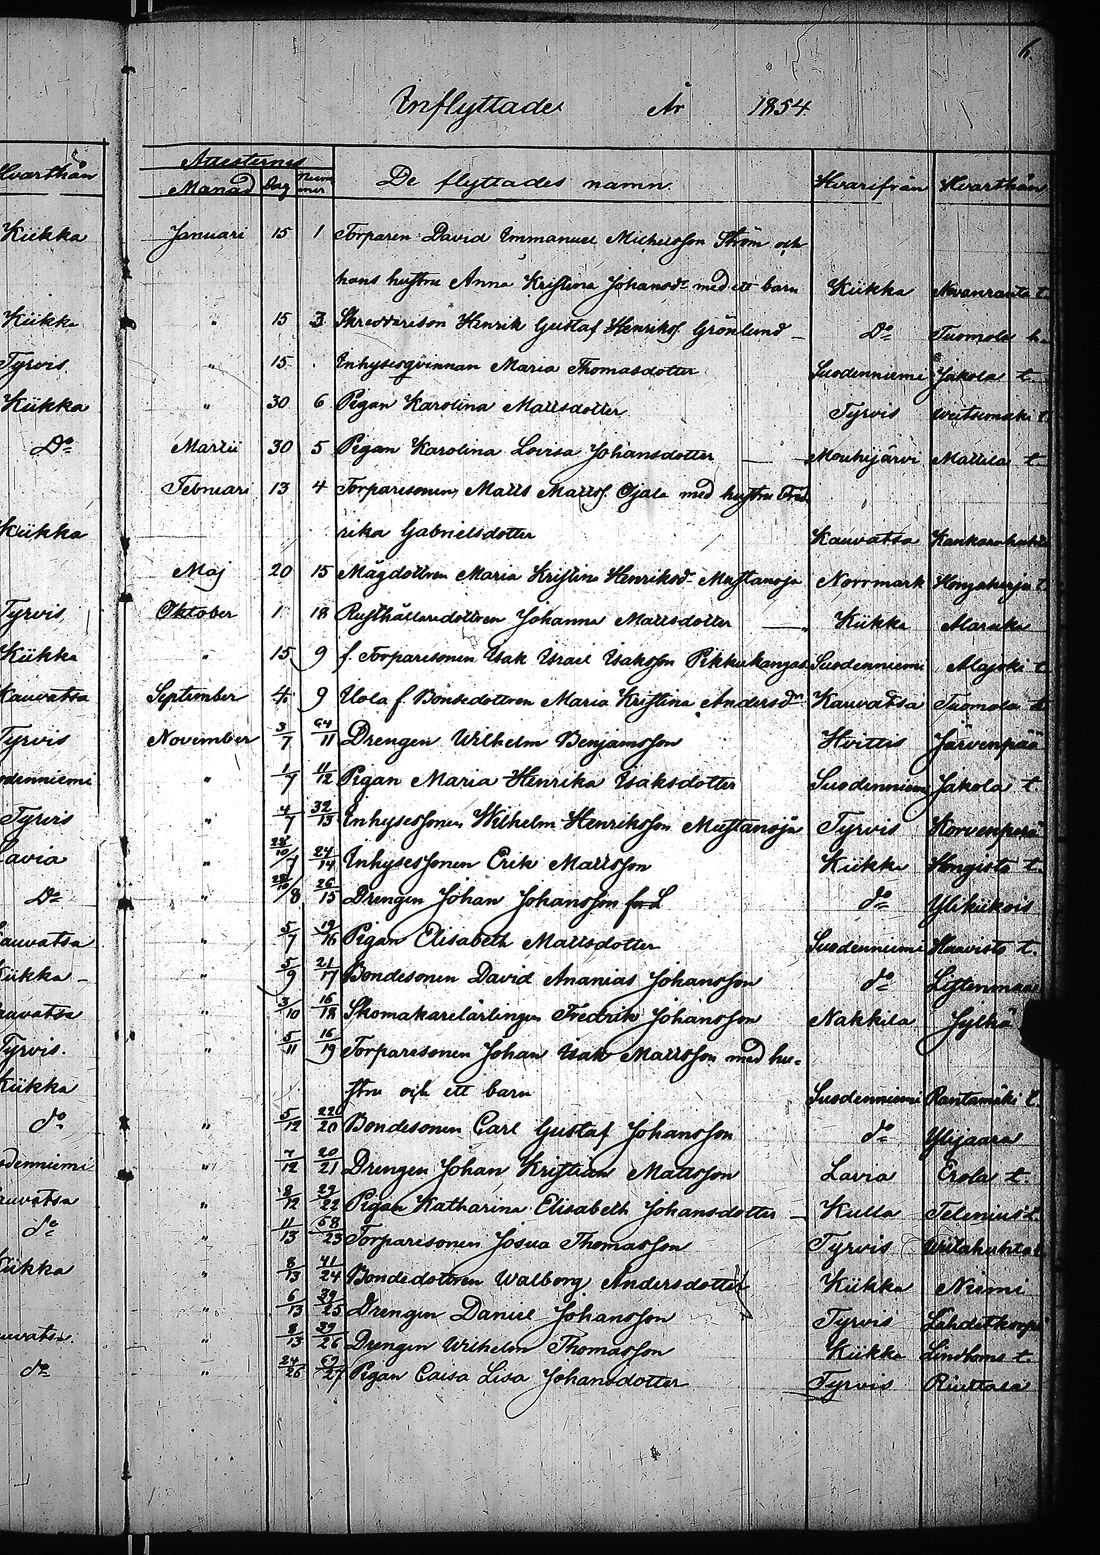 6.
Inflyttade År 1854.
Attesternes
Månad Dag Num mer De flyttades namn. Hvarifrån Hvarthän
Hvarthän
Kiikka
Januari 15 1 Torparen David Immanuel Michelsson Ström och
hans hustru Anna Kristina Johansdr med ett barn Kiikka t.
Kiikka
" 15 3 Henrik Gustaf Henrikss. Grönlund Do Tuomola
Tyrvis
" 15 . Inhyseqvinnan Maria Thomasdotter Suodenniemi Jakola t.
Kiikka
" 30 6 Pigan Karolina Mattsdotter Tyrvis t.
Do
Martii 30 5 Pigan Karolina Lovisa Johansdotter Mouhijärvi Mattila t.
Februari 13 4 Torparesonen Matts Mattss. Ojala med hustru Fred
Kiikka
rika Gabrielsdotter Kauvatsa
Maj 20 15 Mågdottren Maria Kristina Henriksdr Mustanoja Norrmark t.
Tyrvis
Oktober 1 18 Rusthållaredottren Johanna Mattsdotter Kiikka
Kiikka
" 15 9 f. Torparesonen Isak Israel Isaksson Pikkukangas Suodenniemi Alajoki t.
Kauvatsa
September 4 9 Uola f. Bondedottren Maria Kristina Andersdr Kauvatsa Tuomola
Tyrvis
November 3/7 64/11 Drengen Wilhelm Benjamsson Hvittis Järvenpää
odenniemi
" 1/7 11/12 Pigan Maria Henrika Isaksdotter Suodenniemi Jakola t.
Tyrvis
" 4/7 32/13 Inhysessonen Wilhelm Henriksson Mustanoja Tyrvis Korvenperä
Lavia
" 28/10/7 24/14 Inhysessonen Erik Mattsson Kiikka Hongisto t.
Do
" 28/10/8 26/15 Drengen Johan Johansson do Ylikiikois
auvatsa
" 5/7 19/16 Pigan Elisabeth Mattsdotter Suodenniemi Haavisto t.
Kiikka
" 5/9 21/17 Bondesonen David Ananias Johansson do
auvatsa
" 3/10 16/18 Skomakarelärlingen Fredrik Johansson Nakkila Jylhä
Tyrvis.
" 5/11 16/19 Torparesonen Johan Isak Mattsson med hu-
Kiikka
stru och ett barn Suodenniemi Rantamäki t.
do
" 5/12 22/20 Bondesonen Carl Gustaf Johansson do Ylijaara
odenniemi
" 7/12 20/21 Drengen Johan Kristian Mattsson Lavia Erola t.
auvatsa
" 8/12 29/22 Pigan Katharina Elisabeth Johansdotter Kulla Telenius t.
do
" 11/13 68/23 Torparesonen Josua Thomasson Tyrvis
Kiikka
" 8/13 41/24 Bondedottren Walborg Andersdotter Kiikka Niemi
" 6/13 39/25 Drengen Daniel Johansson Tyrvis
auvatsa
" 8/13 39/26 Drengen Wilhelm Thomasson Kiikka Lindboms t.
do
" 24/26 69/27 Pigan Caisa Lisa Johansdotter Tyrvis Riuttala